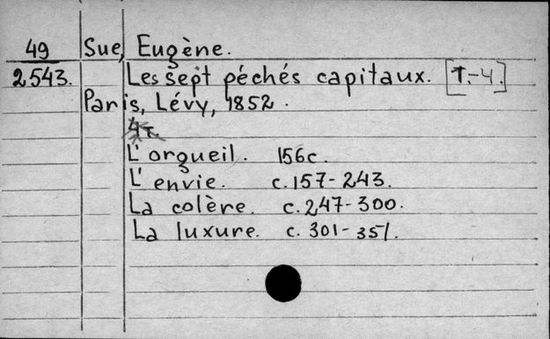 49 Sue, Eugène.
2543. Les sept péchés capitaux. [T-4.]
Paris, Lévy, 1852.
4т.
L'orgueil. 156c.
L'envie. c.157-243.
La colère. c.247-300.
La luxure. c. 301-351.